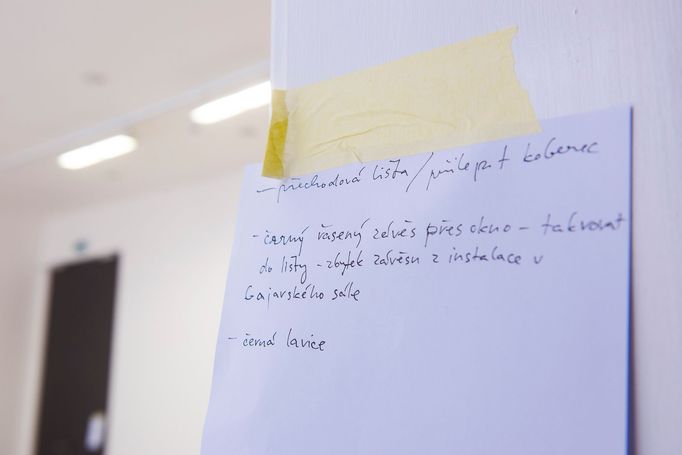 – přechodová lišta / přilepit koberec
– černý řasený závěs přes okno – takrovat
do lišty – zbytek závěsu z instalace v
Gajarského sále
– černá lavice